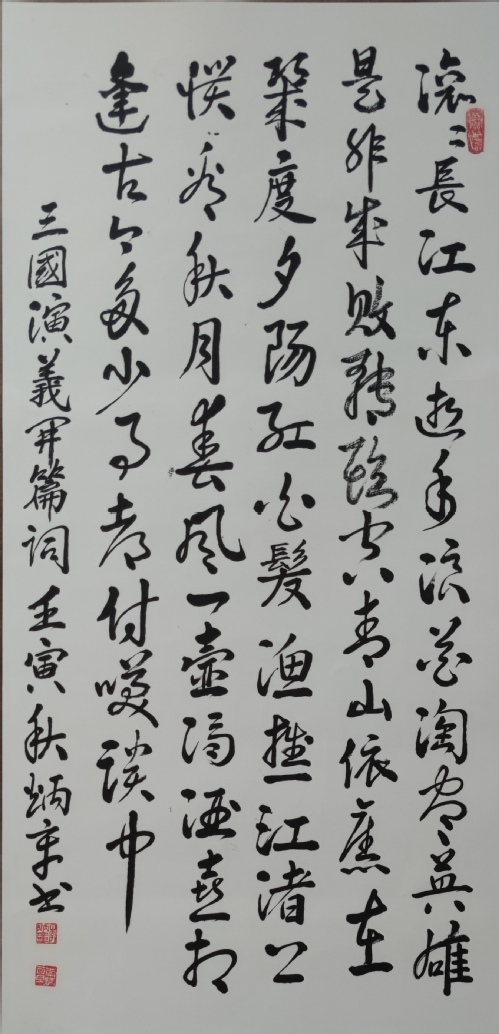 滾〻長江东逝水浪花淘尽英雄
是非成敗轉頭空青山依舊在
幾度夕陽紅白髮漁樵江渚上
慣看秋月春風一壺濁酒喜相
逢古今多少事都付笑談中
三國演義開篇詞 壬寅秋炳章书